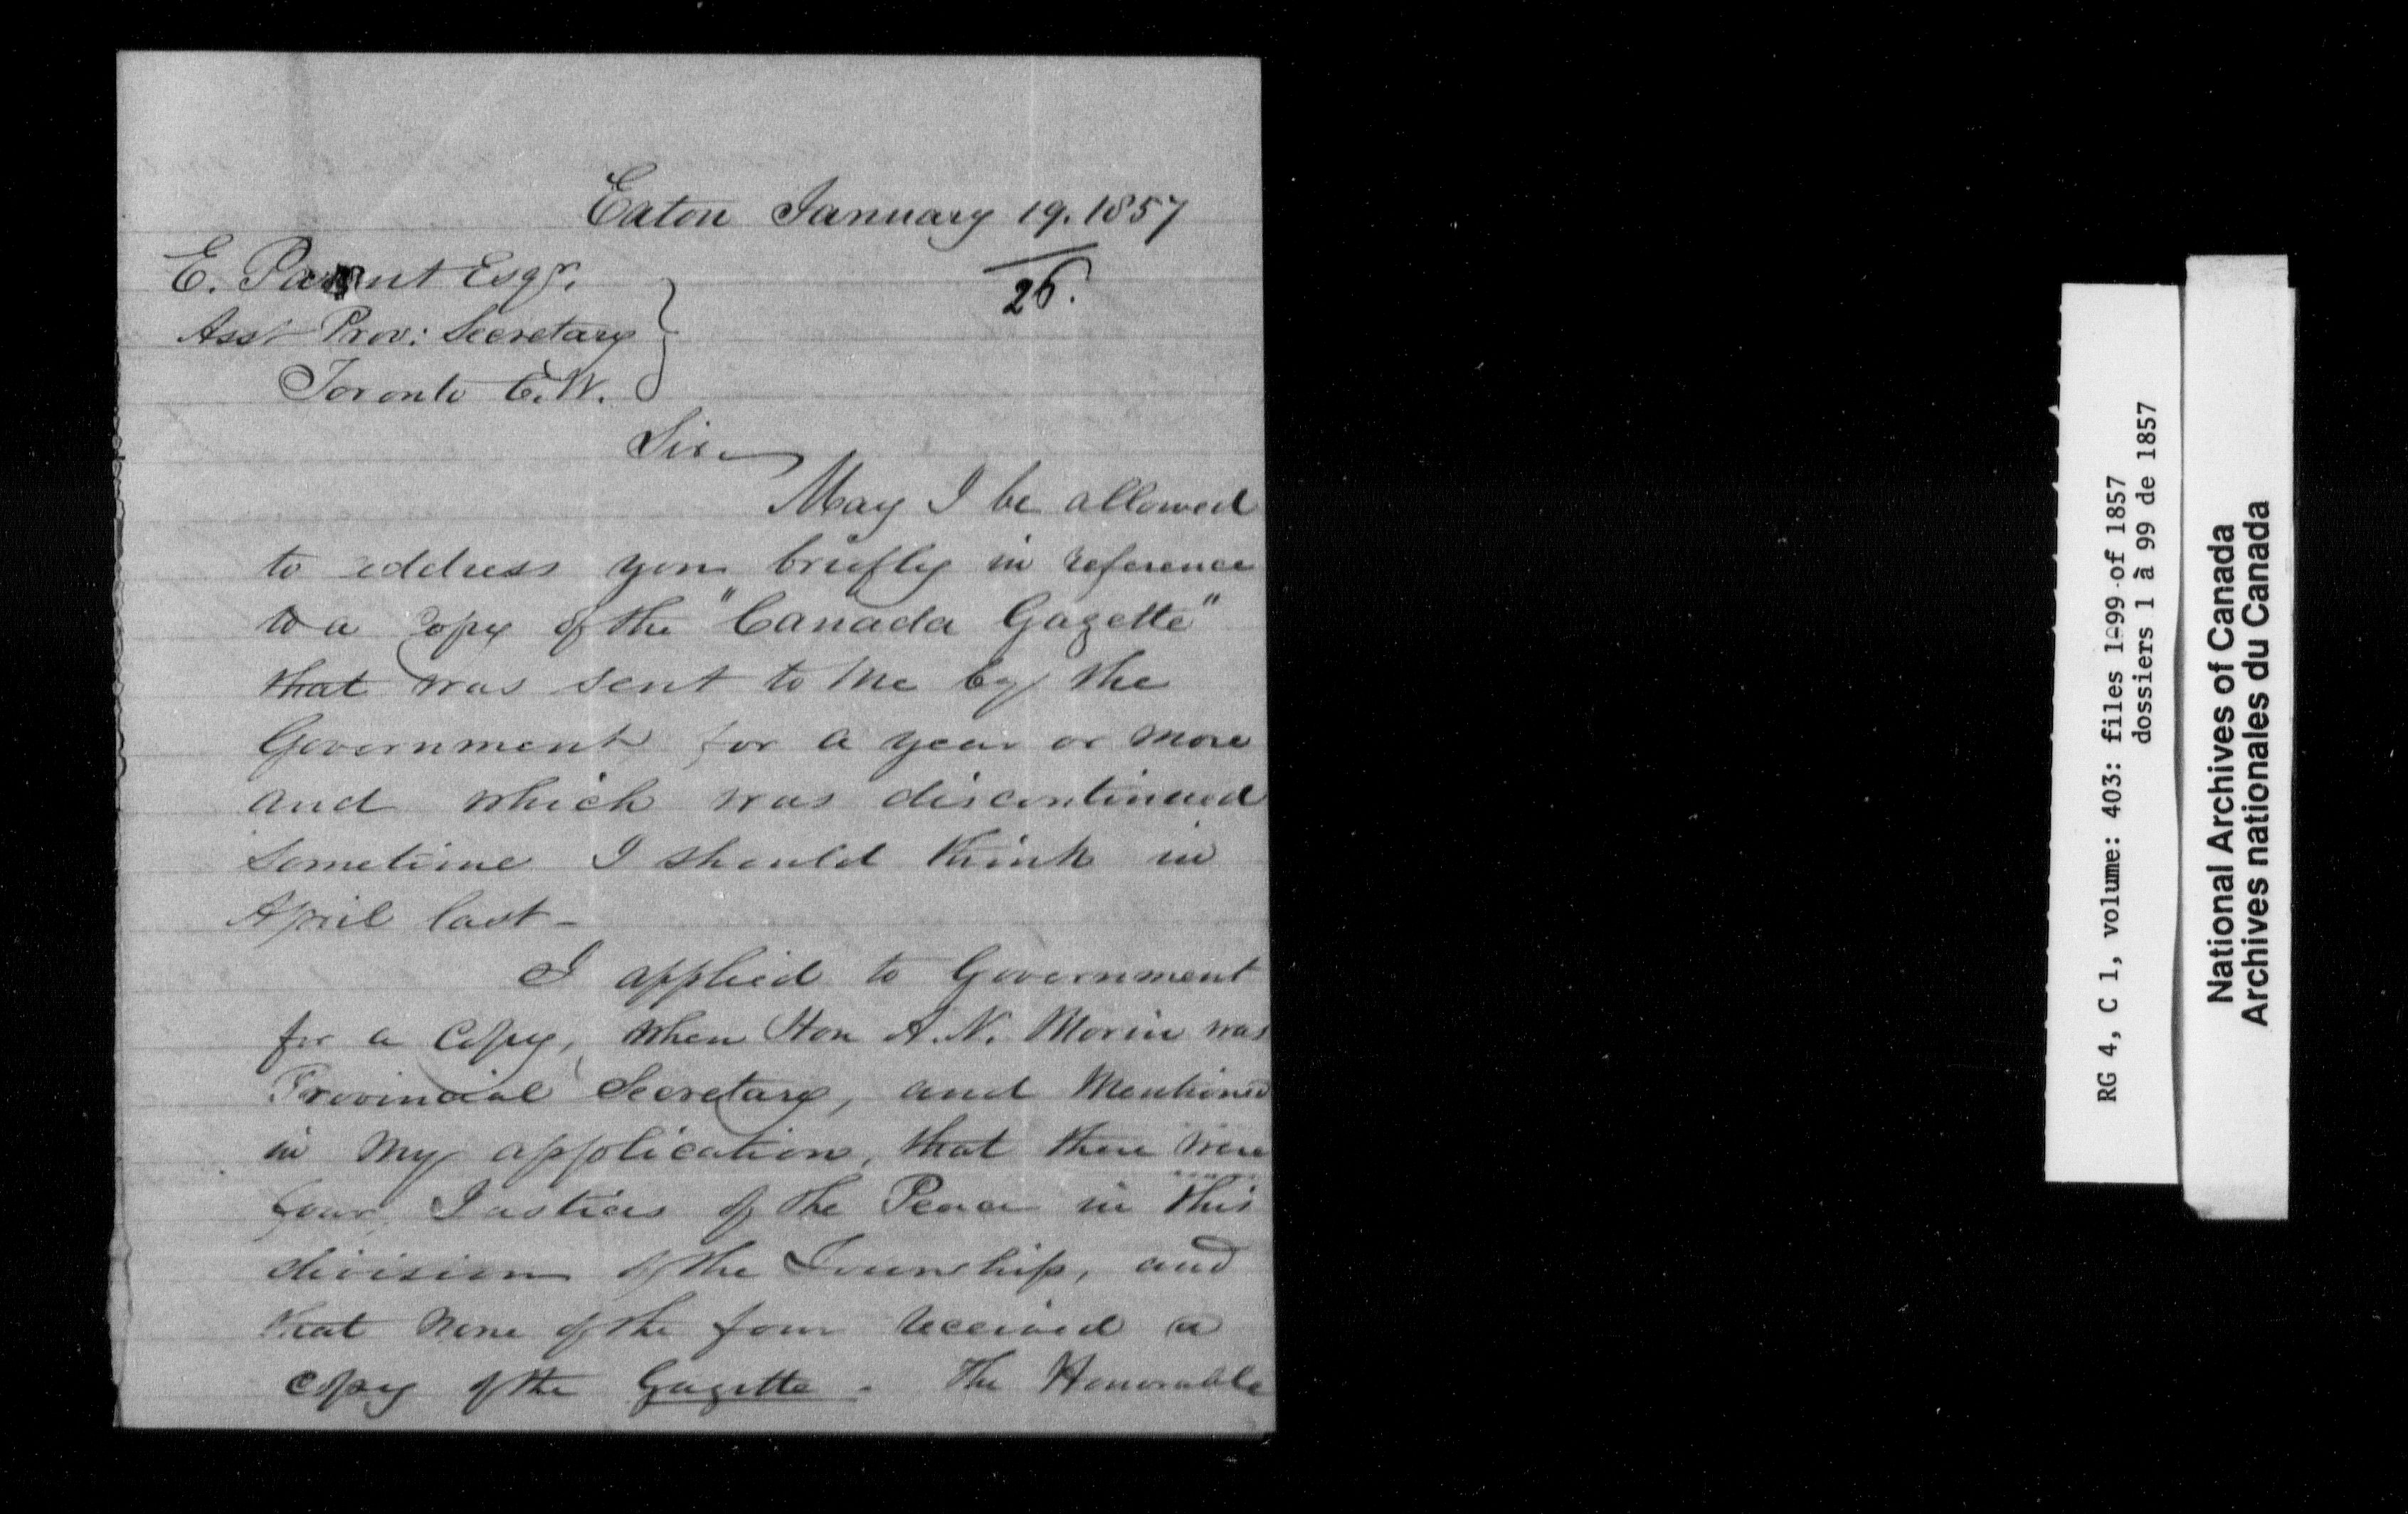 Eaton January 19. 1857
26.
E. Parent Esqr.
Asst Prov: Secretary
Toronto C.W.
Sir
May I be allowed
to address you briefly in reference
to a copy of the "Canada Gazette"
that was sent to me by the
Government for a year or more
and which was discontinued
sometime I should think in
April last -
I applied to Government
for a copy, when Hon A. N. Morin was
Provincial Secretary, and mentioned
in my application, that there were
four Justices of the Peace in this
division of the Township, and
that none of the four received a
copy of the Gazette - The Honorable
RG 4, C 1, volume: 403: files 1-99 of 1857
dossiers 1 à 99 de 1857
National Archives of Canada
Archives nationales du Canada